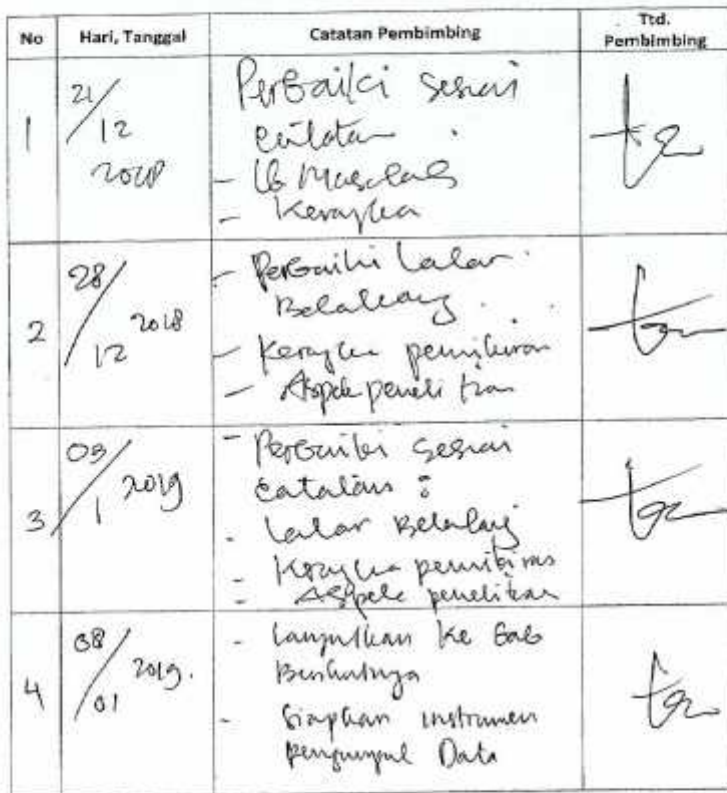 No Hari, Tanggal Catatan Pembimbing Ttd. Pembimbing
1 21/12 2018 Perbaiki sesuai
catatan :
- Lb Masalah
- Kerangka
2 28/12 2018 - Perbaiki Latar
Belakang
- Kerangka pemikiran
- Aspek penelitian
3 03/1 2019 - Perbaiki sesuai
catatan :
- Latar Belakang
- Kerangka pemikiran
- Aspek penelitian
4 08/01 2019. - Lanjutkan ke bab
Berikutnya
- Siapkan instrumen
pengumpul Data